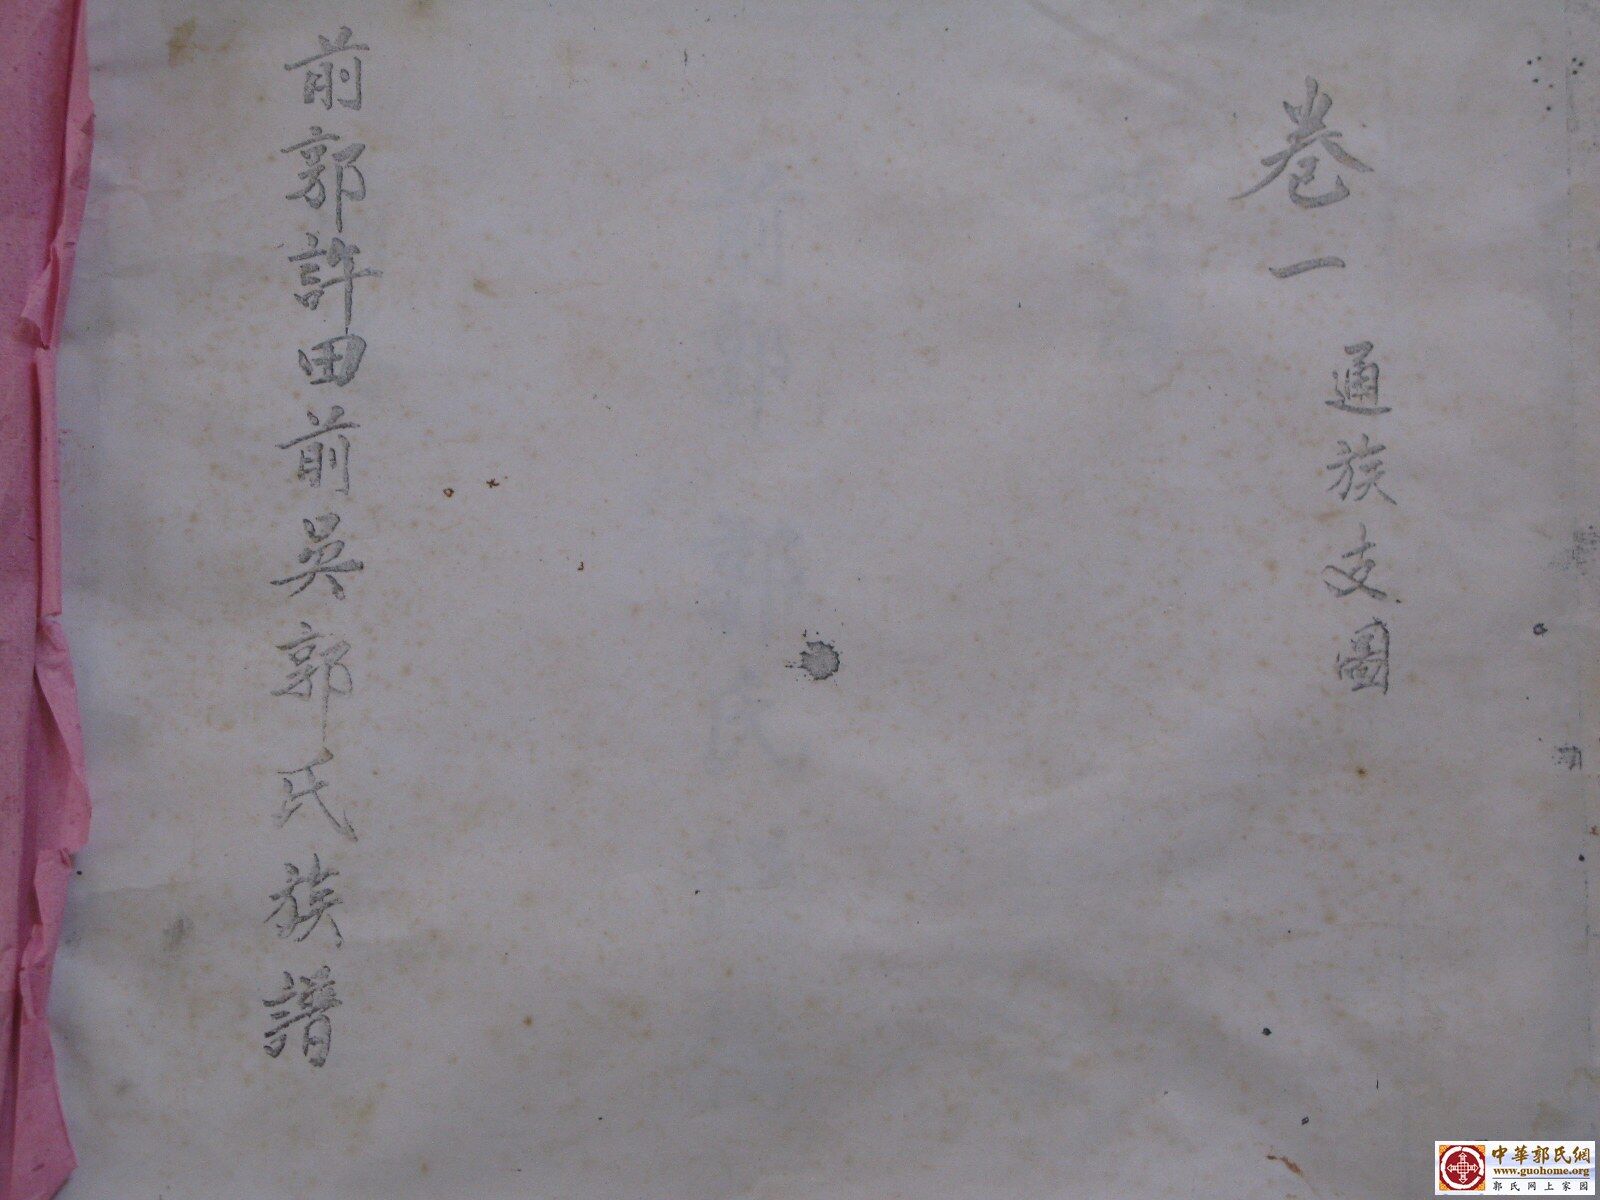 卷一 通族支圖
前郭許田前吳郭氏族譜
中華郭氏網
www.guohome.org
郭氏网上家园